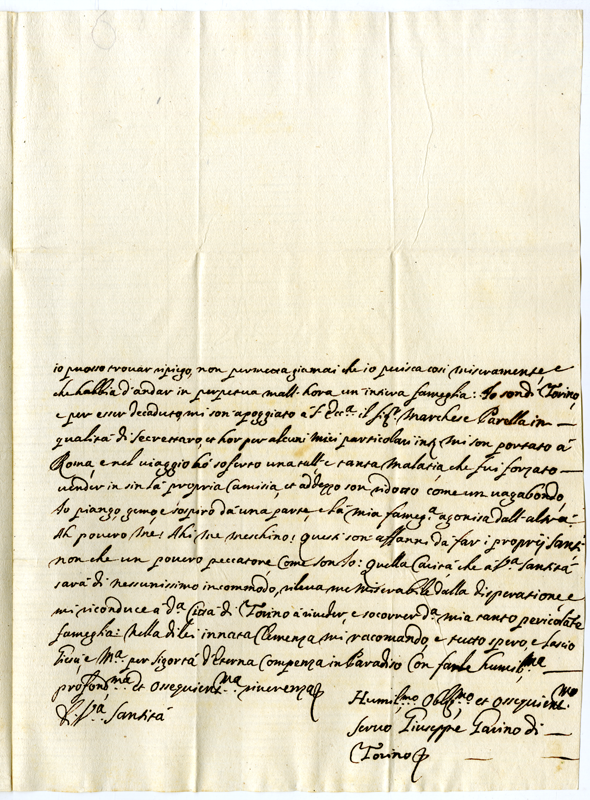 io puosso trovar ripiego, non permetta giamai che io perisca cosi miseramente e
che habbia d'andar in perpetua mall'hora un intiera fameglia: Io son di Torino,
e per esser decaduto, mi son apoggiato a S. Ecc.ª il Sig.r Marchese Parella in
qualità di Secrettaro, et hor per alcuni miei particolari mi son portato à
Roma, e nel viaggio hò soferto una tall' e tanta malatia che fui forzato
vender in sin la propria camisia, et addesso son ridotto come un vagabondo,
Io piango, gemo e sospiro da una parte, e la mia fameg.ª agonisa dall' altra
Ah povero me! Ahi me meschino! questi son affanni da far i proprij santi
non che un povero peccatore come son Io: quella Carità che a V.ª Santità
sarà di nessunissimo incommodo, rileva me miserabile dalla disperatione e
mi riconduce a d.ª Città di Torino à riveder, e socorrer d.ª mia tanto pericolate
fameglia: Nella di lei innata Clemenza mi racomando, e tutto spero, e lascio
Giesù e M.ª per sigortà d'eterna compenza in Paradiso Con humil.ma
profond.ma et ossequient.ma riverenza
D V.ª Santità
Humil.mo Oblig.mo et Ossequient.mo
servo Giuseppe Garino di
Torino